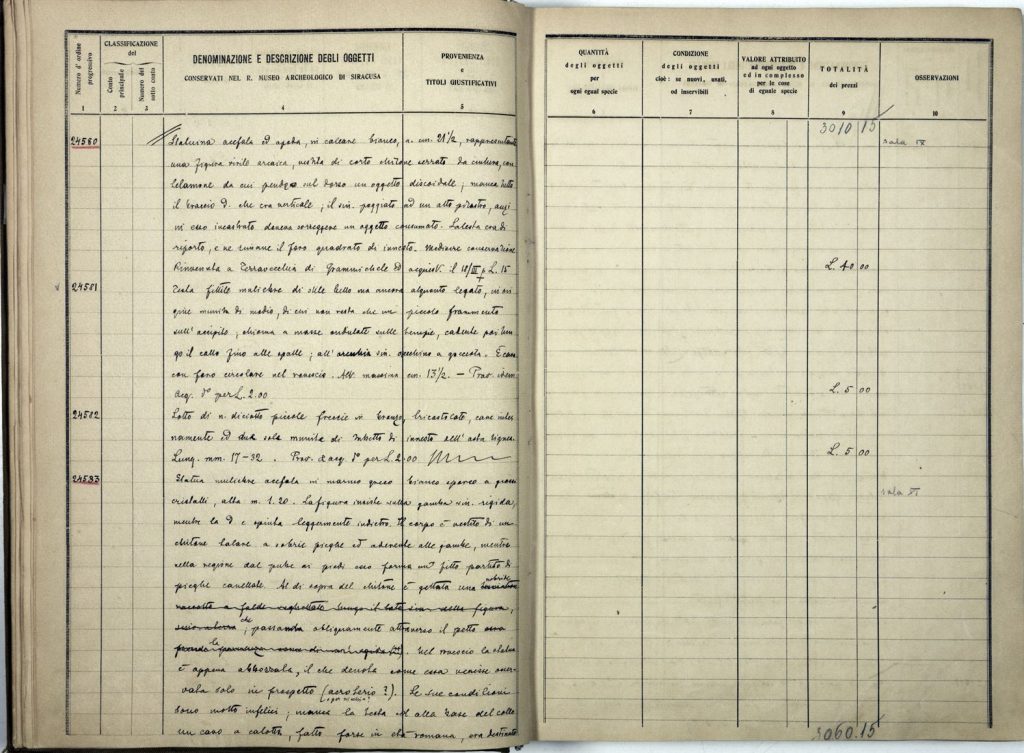 Numero d'ordine progressivo
CLASSIFICAZIONE del
Conto principale
Numero del sotto conto
DENOMINAZIONE E DESCRIZIONE DEGLI OGGETTI
CONSERVATI NEL R. MUSEO ARCHEOLOGICO DI SIRACUSA
PROVENIENZA
e
TITOLI GIUSTIFICATIVI
1 2 3 4 5
24580 Statuina acefala ed apoda, in calcare bianco, a. cm. 21½, rappresentante
una figura virile arcaica, vestita di corto chitone serrato da cintura, con
telamone da cui pende sul dorso un oggetto discoidale; manca tutto
il braccio d. che era verticale; il sin. poggiato ad un alto pilastro, anzi
in esso incastrato doveva sorreggere un oggetto consumato. La testa era di
riporto, e ne rimane il foro quadrato di innesto. Mediocre conservazione
Rinvenuta a Terravecchia di Grammichele ed acquist. il 18/III p L. 15
24581 Testa fittile muliebre di stile bello ma ancora alquanto legato, in ori
gine munita di modio, di cui non resta che un piccolo frammento
sull'occipite; chioma a masse ondulate sulle tempie, cadente poi lun
go il collo fino alle spalle; all'orecchia sin. orecchino a goccia. È cava
con foro circolare nel rovescio. Alt. massima cm. 13½. — Prov. idem
Acq. d° per L. 2.00
24582 Lotto di n. diciotto piccole freccie in bronzo, tricuspidate, cave inter
namente ed una sola munita di tubetto di innesto nell'asta lignea.
Lung. mm. 17-32. Prov. & acq. d° per L. 2.00
24583 Statua muliebre acefala in marmo greco bianco opaco a grossi
cristalli, alta m. 1.20. La figura insiste sulla gamba sin. rigida,
mentre la d. è spinta leggermente indietro. Il corpo è vestito di un
chitone talare a sobrie pieghe ed aderente alle gambe, mentre
nella regione dal pube ai piedi esso forma un fitto partito di
pieghe canellate. Al di sopra del chitone è gettata una nebride
raccolta a falde lungo il lato sin. della figura,
che passa obliquamente attraverso il petto
la. Nel rovescio la statua
è appena abbozzata, il che denota come essa venisse osser-
vata solo in prospetto (acroterio?). Le sue condizioni
sono molto infelici; manca la testa ed alla base del collo
un cavo a calotta, fatto forse in età romana, era destinato
QUANTITÀ
degli oggetti
per
ogni egual specie
CONDIZIONE
degli oggetti
cioè: se nuovi, usati,
od inservibili
VALORE ATTRIBUITO
ad ogni oggetto
ed in complesso
per le cose
di eguale specie
TOTALITÀ
dei prezzi
OSSERVAZIONI
6 7 8 9 10
3010 15
sala IX
L. 40 00
L. 5 00
L. 5 00
sala XI
3060.15